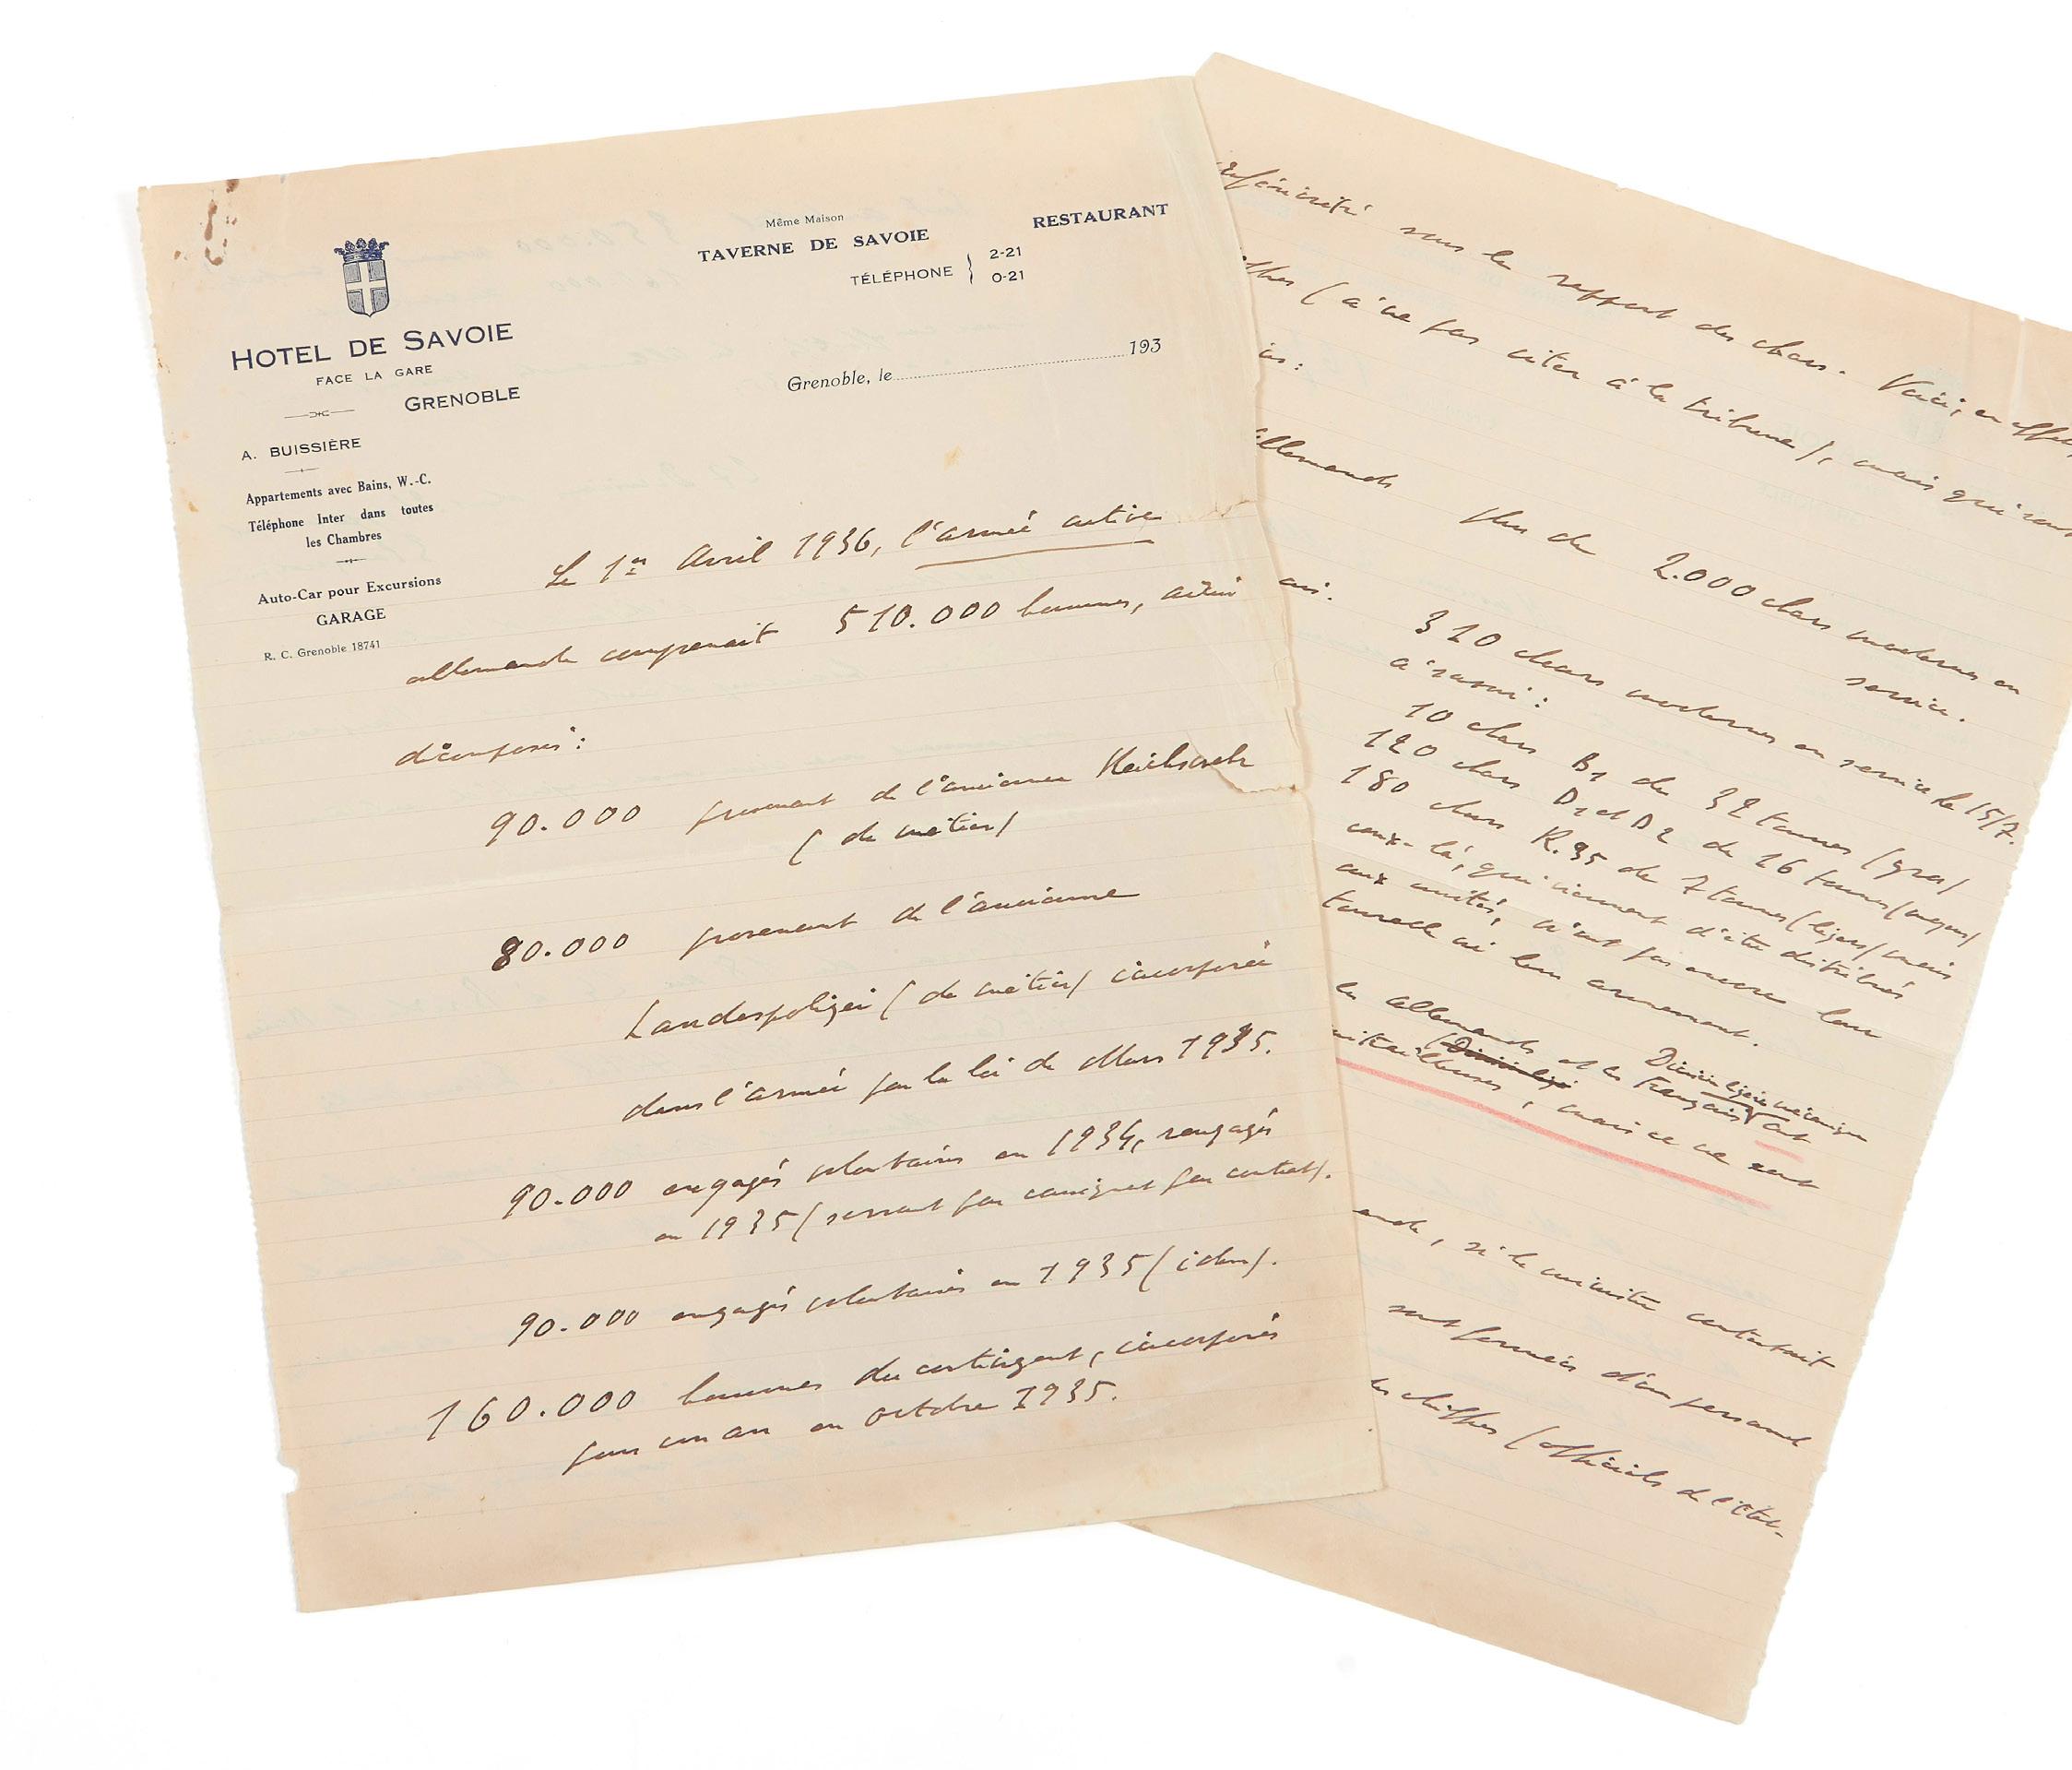 Même Maison
TAVERNE DE SAVOIE
RESTAURANT
TÉLÉPHONE } 2-21
0-21
HOTEL DE SAVOIE
FACE LA GARE
GRENOBLE
Grenoble, le 193
A. BUISSIÈRE
Appartements avec Bains, W.-C.
Téléphone Inter dans toutes
les Chambres
Auto-Car pour Excursions
GARAGE
R. C. Grenoble 18741
Le 1er Avril 1936, l'armée active
allemande comprenait 510.000 hommes, ainsi
décomposés :
90.000 provenant de l'ancienne Reichswehr
(de métier)
80.000 provenant de l'ancienne
Landespolizei (de métier) incorporée
dans l'armée par la loi de Mars 1935.
90.000 engagés volontaires en 1934, rengagés
en 1935 (servant par contrat).
90.000 engagés volontaires en 1935 (idem).
160.000 hommes du contingent, incorporés
pour un an en octobre 1935.
infériorité sous le rapport des chars. Voici, en effet,
(à ne pas citer à la tribune), mais qui sont
allemands plus de 2.000 chars modernes en
service.
310 chars modernes en service le 15/7.
à savoir :
10 chars B1 de 32 tonnes (gros)
120 chars D1 et D2 de 16 tonnes (moyens)
180 chars R.35 de 7 tonnes (légers) mais
ceux-là, qui viennent d'être distribués
aux unités, n'ont pas encore leur
tourelle ni leur armement.
Division légère mécanique
les allemands et les Français ont
mitrailleuses, mais ce ne sont
, si le ministre contestait
sont formées d'un personnel
chiffres (officiels de l'Etat-